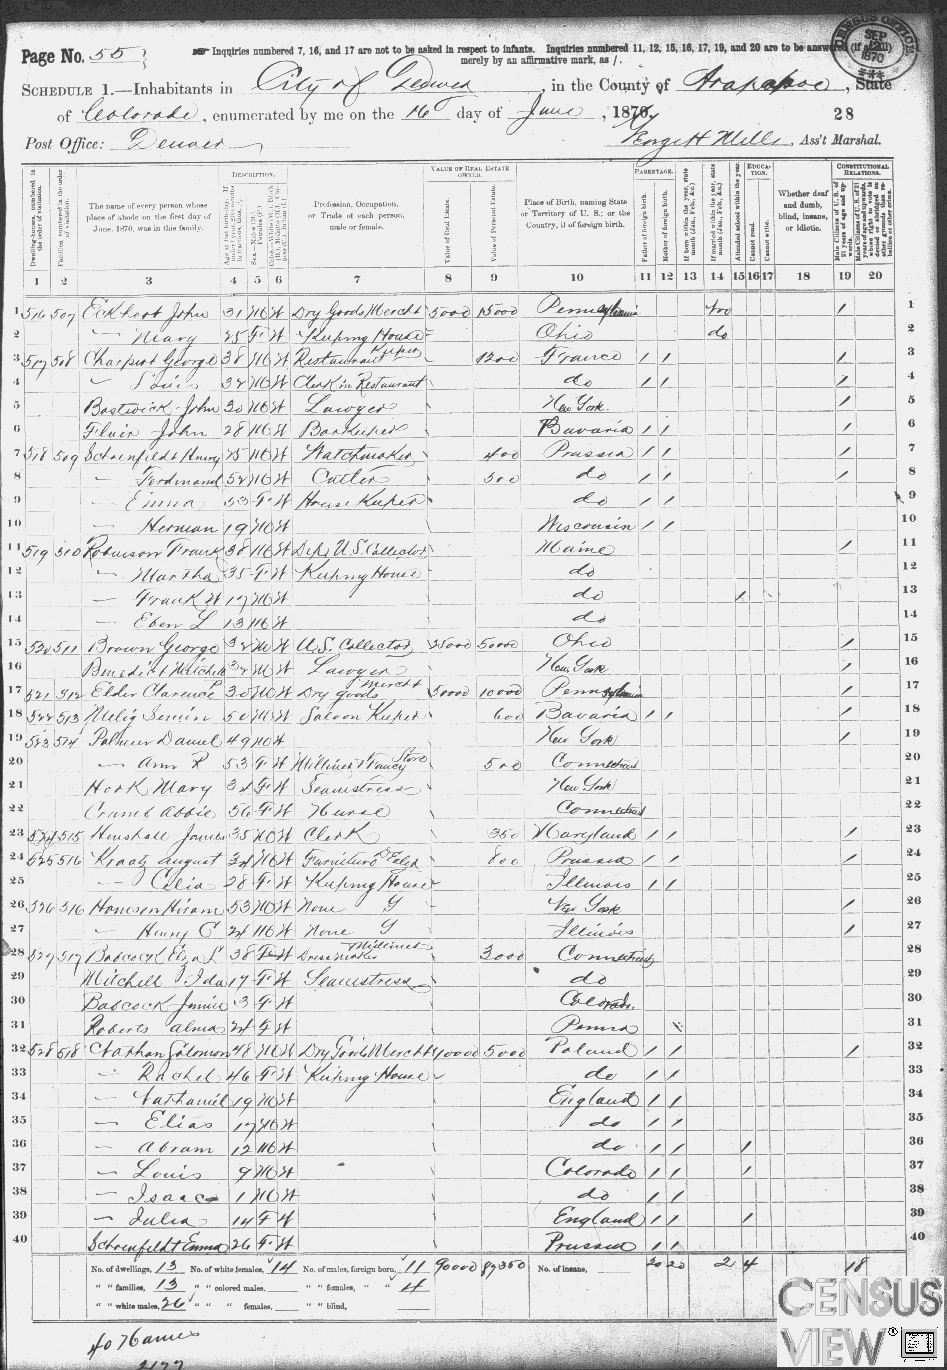 Page No. 55
☞ Inquiries numbered 7, 16, and 17 are not to be asked in respect to infants. Inquiries numbered 11, 12, 15, 16, 17, 19, and 20 are to be answered (if at all)
merely by an affirmative mark, as /.
CENSUS OFFICE SEP 12 1870 ***
SCHEDULE 1.—Inhabitants in City of Denver, in the County of Arapahoe, State
of Colorado, enumerated by me on the 16 day of June, 1870. 28
Post Office: Denver George H Mills, Ass't Marshal.
The name of every person whose place of abode on the first day of June, 1870, was in this family.
DESCRIPTION.
Profession, Occupation, or Trade of each person, male or female.
VALUE OF REAL ESTATE OWNED.
Value of Real Estate.
Value of Personal Estate.
Place of Birth, naming State or Territory of U. S.; or the Country, if of foreign birth.
PARENTAGE.
Father of foreign birth.
Mother of foreign birth.
EDUCATION.
Attended school within the year.
Cannot read.
Cannot write.
Whether deaf and dumb, blind, insane, or idiotic.
CONSTITUTIONAL RELATIONS.
1 2 3 4 5 6 7 8 9 10 11 12 13 14 15 16 17 18 19 20
1 516 507 Eckhort John 31 M W Dry Goods Mercht 5000 15000 Pennsylvania 1 1
2 — Mary 25 F W Keeping House Ohio do 2
3 517 508 Charpiot George 38 M W Restaurant Keeper 1200 France / / 1 3
4 — Louis 32 M W Clerk in Restaurant do / / 1 4
5 Bostwick John 30 M W Lawyer New York 1 5
6 John 28 M W BarKeeper Bavaria / / 1 6
7 518 509 Schoenfeldt Henry 25 M W Watchmaker 400 Prussia / / 1 7
8 — Ferdinand 52 M W Cutler 500 do / / 1 8
9 — Emma 53 F W House Keeper do / / 9
10 — Herman 19 M W Wisconsin / / 10
11 519 510 Robinson Frank 38 M W Dep. U.S. Collector Maine 1 11
12 — Martha 35 F W Keeping House do 12
13 — Frank W 17 M W do 1 13
14 — Eben L 13 M W do 14
15 520 511 Brown George 32 M W U.S. Collector 25000 50000 Ohio 1 15
16 Benedict Mitchell 32 M W Lawyer New York 1 16
17 521 512 Elder Clarence P 30 M W Dry goods Mercht 50000 10000 Pennsylvania 1 17
18 522 513 50 M W Saloon Keeper 600 Bavaria / / 1 18
19 523 514 Palmer Daniel 49 M W New York 1 19
20 — Ann R 53 F W Milliner & Fancy Store 500 Connecticut 20
21 Hook Mary 34 F W Seamstress New York 21
22 Crumb Abbie 56 F W Nurse Connecticut 22
23 524 515 Henshall James 35 M W Clerk 350 Maryland / / 1 23
24 525 516 August 34 M W Furniture Dealer 800 Prussia / / 1 24
25 — Celia 28 F W Keeping House Illinois / / 25
26 526 316 Hiram 53 M W None Y New York 1 26
27 — Henry C 24 M W None Y Illinois 1 27
28 527 517 Babcock Eliza S 38 F W Dressmaker Milliner 3000 Connecticut 28
29 Mitchell Ida 17 F W Seamstress do 29
30 Babcock Jennie 3 F W Colorado 30
31 Roberts Alma 24 F W Penna 31
32 528 518 Nathan Solomon 48 M W Dry Goods Mercht 10000 5000 Poland / / 1 32
33 — Rachel 46 F W Keeping House do / / 33
34 — Nathaniel 19 M W England / / 34
35 — Elias 17 M W do / / 35
36 — Abram 12 M W do / / 1 36
37 — Louis 9 M W Colorado / / 1 37
38 — Isaac 1 M W do / / 38
39 — Julia 14 F W England / / 1 39
40 Schoenfeldt Emma 26 F W Prussia / / 40
No. of dwellings, 13 No. of white females, 14 No. of males, foreign born, 11 90000 87350 No. of insane, 20 20 2 4 18
" " families, 13 " " colored males, " " females, " " 4
" " white males, 26 " " " females, " " blind,
40 Names
CENSUS
VIEW®